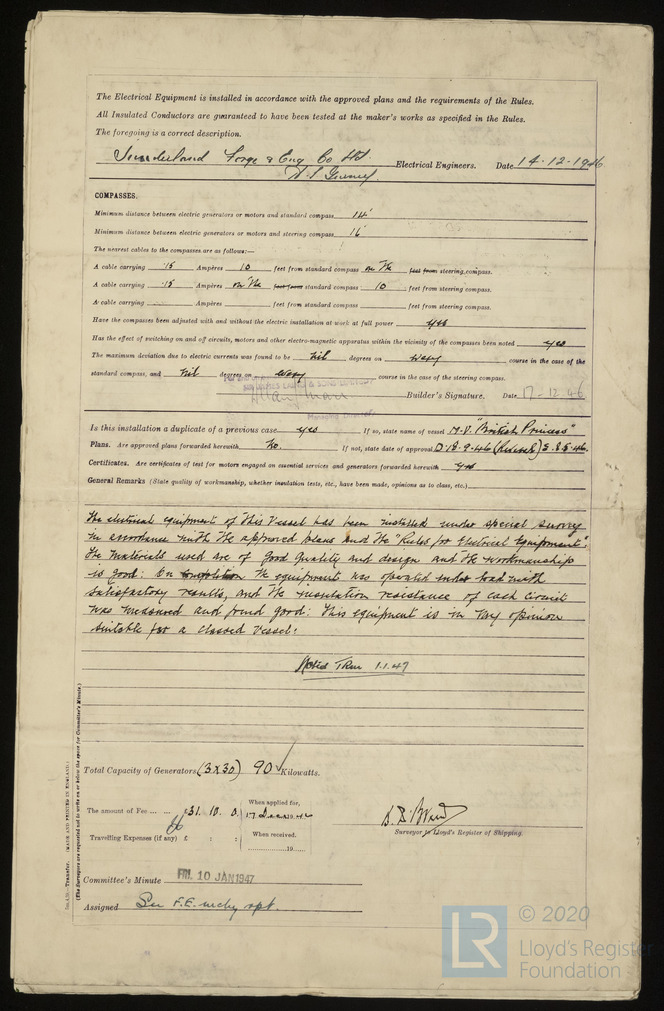 The Electrical Equipment is installed in accordance with the approved plans and the requirements of the Rules.
All Insulated Conductors are guaranteed to have been tested at the maker's works as specified in the Rules.
The foregoing is a correct description.
Sunderland Forge & Eng Co Ltd Electrical Engineers. Date 14-12-1946
COMPASSES.
Minimum distance between electric generators or motors and standard compass 14'
Minimum distance between electric generators or motors and steering compass 16'
The nearest cables to the compasses are as follows:—
A cable carrying .15 Ampères 10 feet from standard compass on the feet from steering compass.
A cable carrying .15 Ampères on the feet from standard compass 10 feet from steering compass.
A cable carrying Ampères feet from standard compass feet from steering compass.
Have the compasses been adjusted with and without the electric installation at work at full power yes
Has the effect of switching on and off circuits, motors and other electro-magnetic apparatus within the vicinity of the compasses been noted yes
The maximum deviation due to electric currents was found to be Nil degrees on every course in the case of the
standard compass, and Nil degrees on every course in the case of the steering compass.
SIR JAMES LAING & SONS LIMITED
Managing Director
Builder's Signature. Date 17-12-46
Is this installation a duplicate of a previous case yes If so, state name of vessel M.V. "British Princess"
Plans. Are approved plans forwarded herewith No If not, state date of approval
Certificates. Are certificates of test for motors engaged on essential services and generators forwarded herewith yes
General Remarks (State quality of workmanship, whether insulation tests, etc., have been made, opinions as to class, etc.)
The electrical equipment of this Vessel has been installed under special survey
in accordance with the approved plans and the "Rules for Electrical Equipment".
The materials used are of good quality and design and the workmanship
is good: On completion the equipment was operated under load with
satisfactory results, and the insulation resistance of each circuit
was measured and found good: This equipment is in my opinion
suitable for a classed vessel:
Noted 1.1.47
Total Capacity of Generators (3x30) 90 Kilowatts.
The amount of Fee ... ... £31. 10. 0 When applied for, 17 Dec 1946
Travelling Expenses (if any) £ : : When received. 19
Surveyor to Lloyd's Register of Shipping.
Committee's Minute FRI. 10 JAN 1947
Assigned See F.E. mchy rpt.
Transfer. MADE AND PRINTED IN ENGLAND.
(The Surveyors are requested not to write on or below the space for Committee's Minute.)
LR © 2020
Lloyd's Register
Foundation